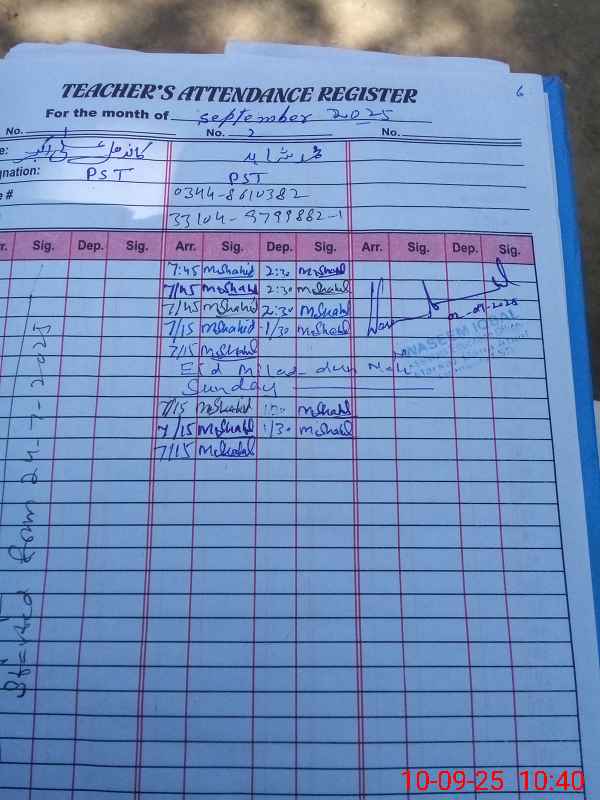 6
TEACHER'S ATTENDANCE REGISTER
For the month of september 2025
No. 1 No. 2 No.
e: محمد شاہد
gnation: PST PST
e # 0344-8610382
33104-9799862-1
rr. Sig. Dep. Sig. Arr. Sig. Dep. Sig. Arr. Sig. Dep. Sig.
7:45 M.Shahid 2:30 M.Shahid
7/45 M.Shahid 2:30 M.Shahid
7/45 M.Shahid 2:30 M.Shahid
7/15 M.Shahid 1/30 M.Shahid
7/15 M.Shahid
NASEEM IQBAL
Eid Milad
Sunday
7/15 M.Shahid M.Shahid
7/15 M.Shahid 1/30 M.Shahid
7/15 M.Shahid
from 24-7-2025
10-09-25 10:40